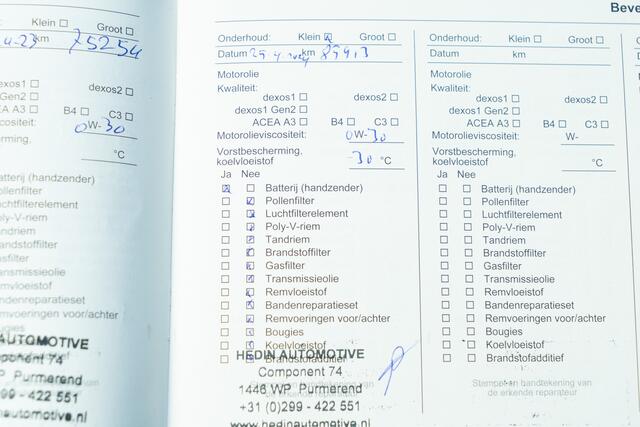 Klein Groot
4-23 km 75254
dexos1 dexos2
Gen2
ACEA A3 B4 C3
cositeit: 0W-30
erming,
°C
atterij (handzender)
ollenfilter
uchtfilterelement
oly-V-riem
andriem
randstoffilter
asfilter
ansmissieolie
emvloeistof
andenreparatieset
emvoeringen voor/achter
ougies
AUTOMOTIVE
ponent 74
Purmerend
422 551
nautomotive.nl
Beve
Onderhoud: Klein Groot
Datum km
Motorolie
Kwaliteit:
dexos1 dexos2
dexos1 Gen2
ACEA A3 B4 C3
Motorolieviscositeit: 0W-30
Vorstbescherming,
koelvloeistof -30 °C
Ja Nee
Batterij (handzender)
Pollenfilter
Luchtfilterelement
Poly-V-riem
Tandriem
Brandstoffilter
Gasfilter
Transmissieolie
Remvloeistof
Bandenreparatieset
Remvoeringen voor/achter
Bougies
Koelvloeistof
Brandstofadditief
HEDIN AUTOMOTIVE
Component 74
1446 WP Purmerend
+31 (0)299 - 422 551
www.hedinautomotive.nl
Onderhoud: Klein Groot
Datum km
Motorolie
Kwaliteit:
dexos1 dexos2
dexos1 Gen2
ACEA A3 B4 C3
Motorolieviscositeit: W-
Vorstbescherming,
koelvloeistof °C
Ja Nee
Batterij (handzender)
Pollenfilter
Luchtfilterelement
Poly-V-riem
Tandriem
Brandstoffilter
Gasfilter
Transmissieolie
Remvloeistof
Bandenreparatieset
Remvoeringen voor/achter
Bougies
Koelvloeistof
Brandstofadditief
Stempel en handtekening van
de erkende reparateur